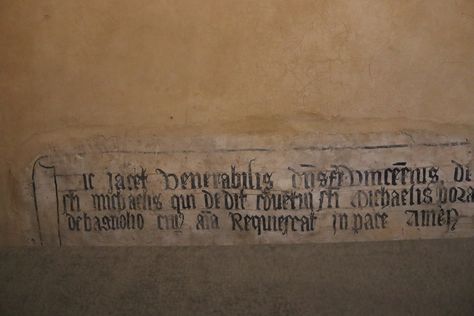 Hic iacet Venerabilis dn̄s fr̄ Vincentius, De
sti michaelis qui dedit conuetui sti Michaelis pora
de bagnolio cuiꝰ aīa Requiescat in pace Amen